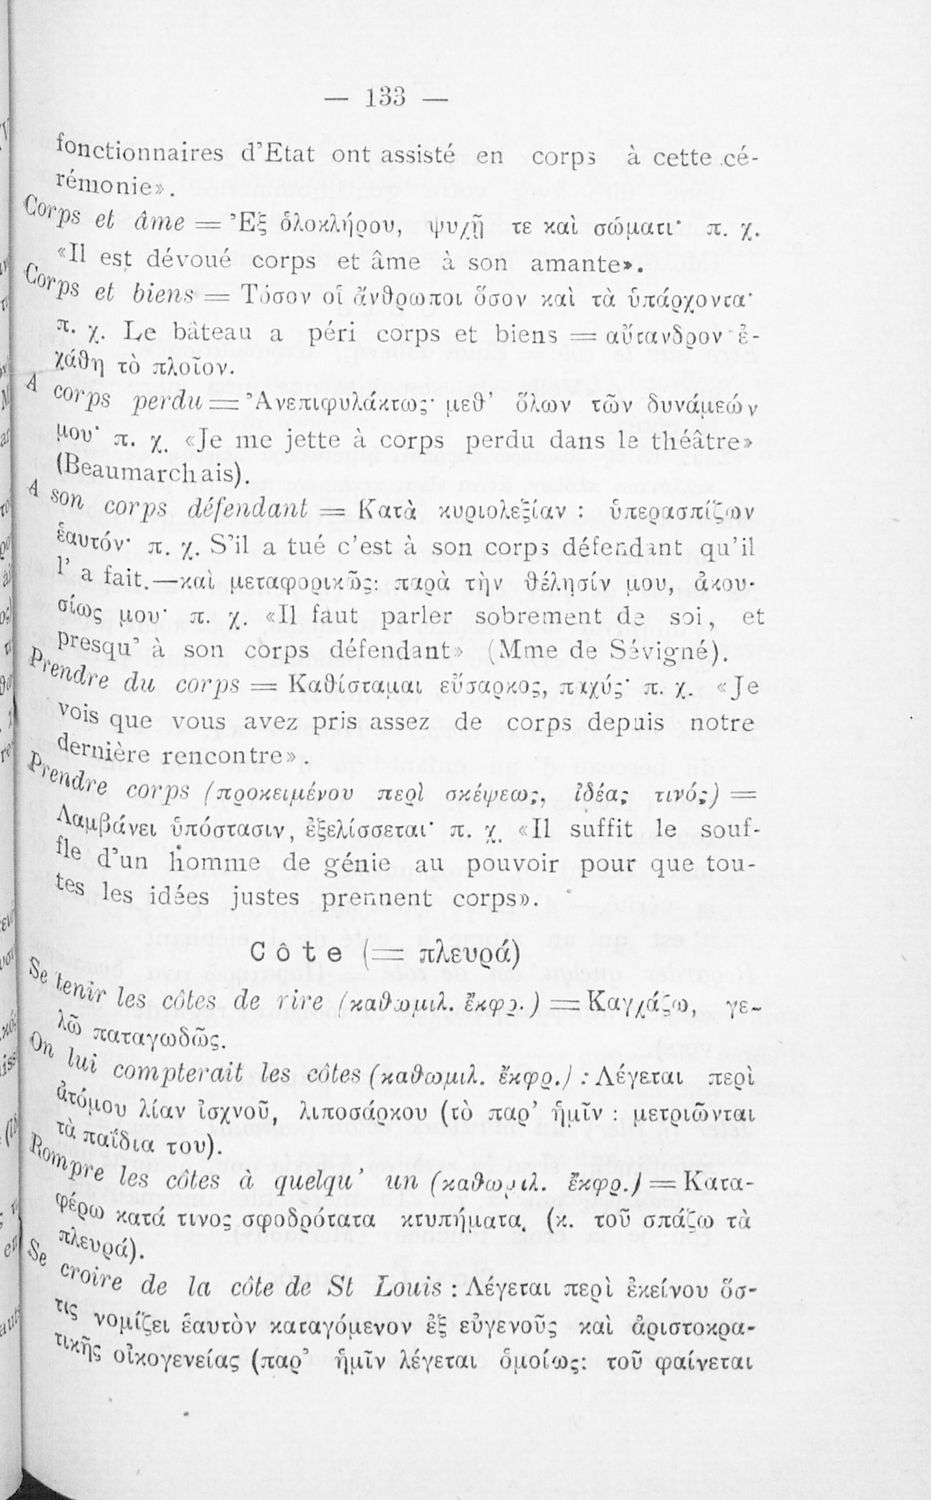 — 133 —
fonctionnaires d'Etat ont assisté en corps à cette cé-
rémonie».
Corps et âme = Ἐξ ὁλοκλήρου, ψυχῇ τε καὶ σώματι· π. χ.
«Il est dévoué corps et âme à son amante».
Corps et biens = Τόσον οἱ ἄνθρωποι ὅσον καὶ τὰ ὑπάρχοντα·
π. χ. Le bâteau a péri corps et biens = αὔτανδρον ἐ-
χάθη τὸ πλοῖον.
A corps perdu = Ἀνεπιφυλάκτως· μεθ' ὅλων τῶν δυνάμεών
μου· π. χ. «Je me jette à corps perdu dans le théâtre»
(Beaumarchais).
A son corps défendant = Κατὰ κυριολεξίαν : ὑπερασπίζων
ἑαυτόν· π. χ. S'il a tué c'est à son corps défendant qu'il
l' a fait.—καὶ μεταφορικῶς: παρὰ τὴν θέλησίν μου, ἀκου-
σίως μου· π. χ. «Il faut parler sobrement de soi, et
presqu' à son corps défendant» (Mme de Sévigné).
Prendre du corps = Καθίσταμαι εὔσαρκος, παχύς· π. χ. «Je
vois que vous avez pris assez de corps depuis notre
dernière rencontre».
Prendre corps (προκειμένου περὶ σκέψεως, ἰδέας τινός) =
Λαμβάνει ὑπόστασιν, ἐξελίσσεται· π. χ. «Il suffit le souf-
fle d'un homme de génie au pouvoir pour que tou-
tes les idées justes prennent corps».
Côte (= πλευρά)
Se tenir les côtes de rire (καθωμιλ. ἔκφρ.) = Καγχάζω, γε-
λῶ παταγωδῶς.
On lui compterait les côtes (καθωμιλ. ἔκφρ.) : Λέγεται περὶ
ἀτόμου λίαν ἰσχνοῦ, λιποσάρκου (τὸ παρ' ἡμῖν : μετριῶνται
τὰ παΐδια του).
Rompre les côtes à quelqu' un (καθωμιλ. ἔκφρ.) = Κατα-
φέρω κατά τινος σφοδρότατα κτυπήματα, (κ. τοῦ σπάζω τὰ
πλευρά).
Se croire de la côte de St Louis : Λέγεται περὶ ἐκείνου ὅσ-
τις νομίζει ἑαυτὸν καταγόμενον ἐξ εὐγενοῦς καὶ ἀριστοκρα-
τικῆς οἰκογενείας (παρ' ἡμῖν λέγεται ὁμοίως: τοῦ φαίνεται